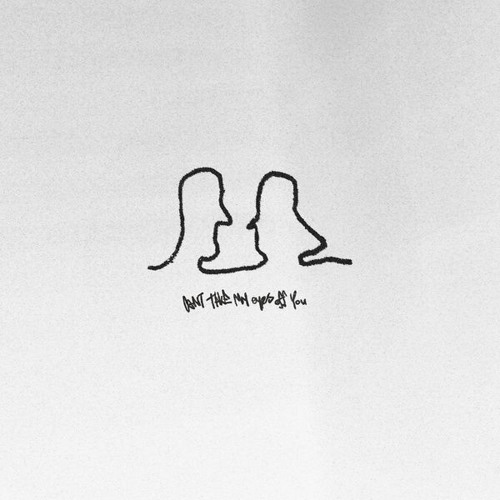 CANT TAKE MY eyes off You